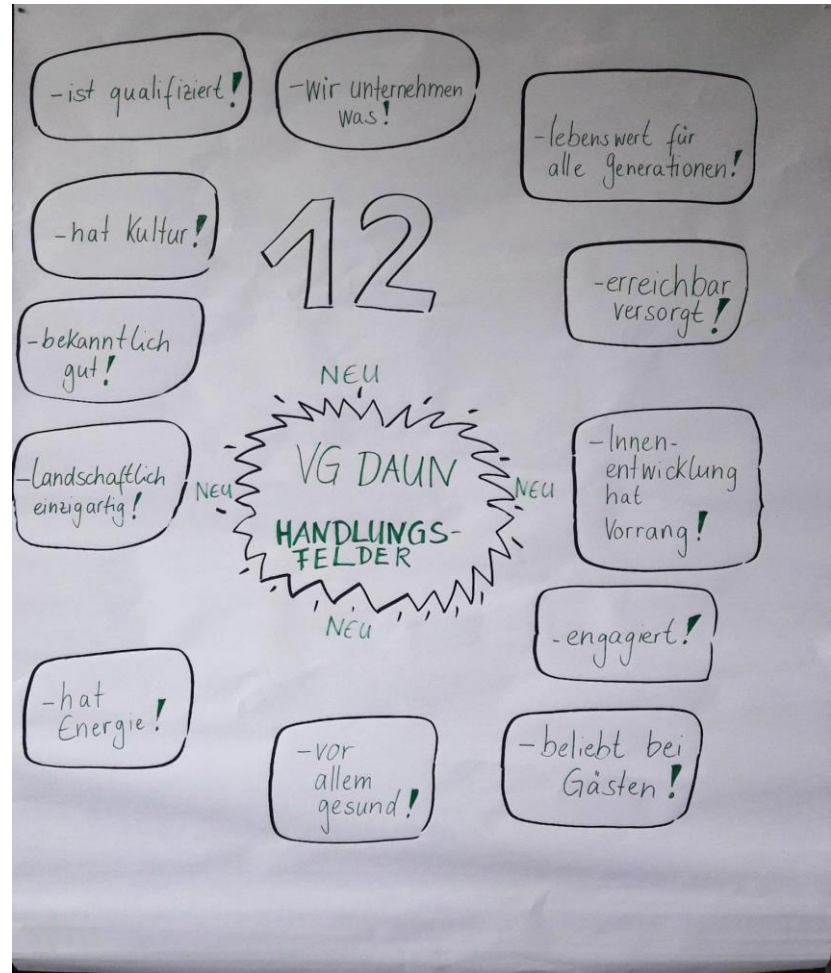 -ist qualifiziert!
-wir unternehmen
was!
-lebenswert für
alle Generationen!
-hat Kultur!
12
-erreichbar
versorgt!
-bekanntlich
gut!
NEU
-Landschaftlich
einzigartig!
NEU
VG DAUN
HANDLUNGS-
FELDER
NEU
-Innen-
entwicklung
hat
Vorrang!
NEU
-engagiert!
-hat
Energie!
-vor
allem
gesund!
-beliebt bei
Gästen!